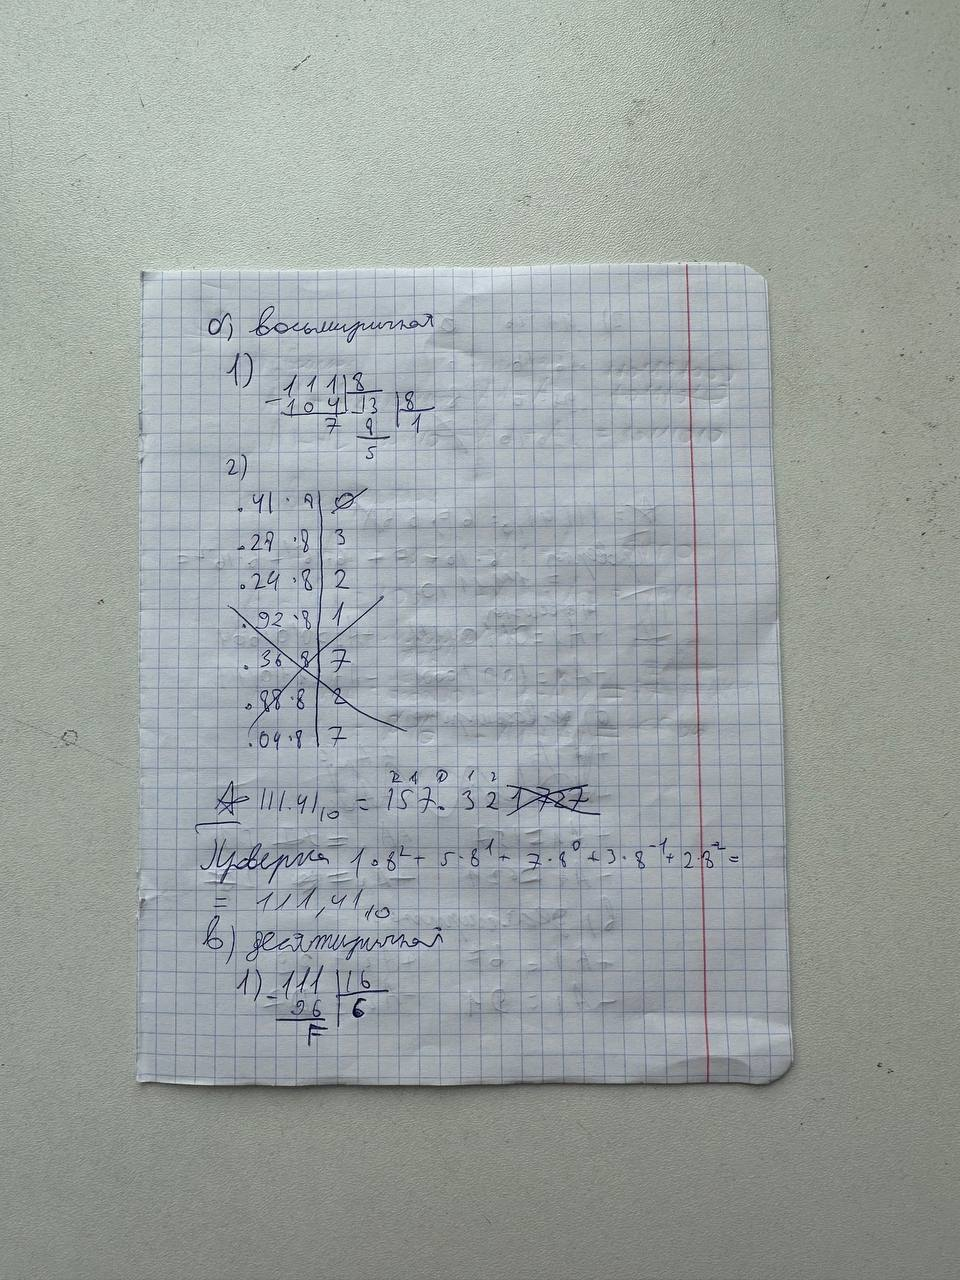 б) восьмиричная
1)
- 111 | 8
104 | 13 | 8
7 8 1
5
2)
.41 · 8 | 0
.28 · 8 | 3
.24 · 8 | 2
.92 · 8 | 1
.36 8 | 7
.88 · 8 | 2
.04 · 8 | 7
2 1 0 1 2
111.41₁₀ = 157.32 1727
Проверка 1·8² + 5·8¹ + 7·8⁰ + 3·8⁻¹ + 2·8⁻² =
= 111,41₁₀
в) десятиричная
1) - 111 | 16
96 | 6
F